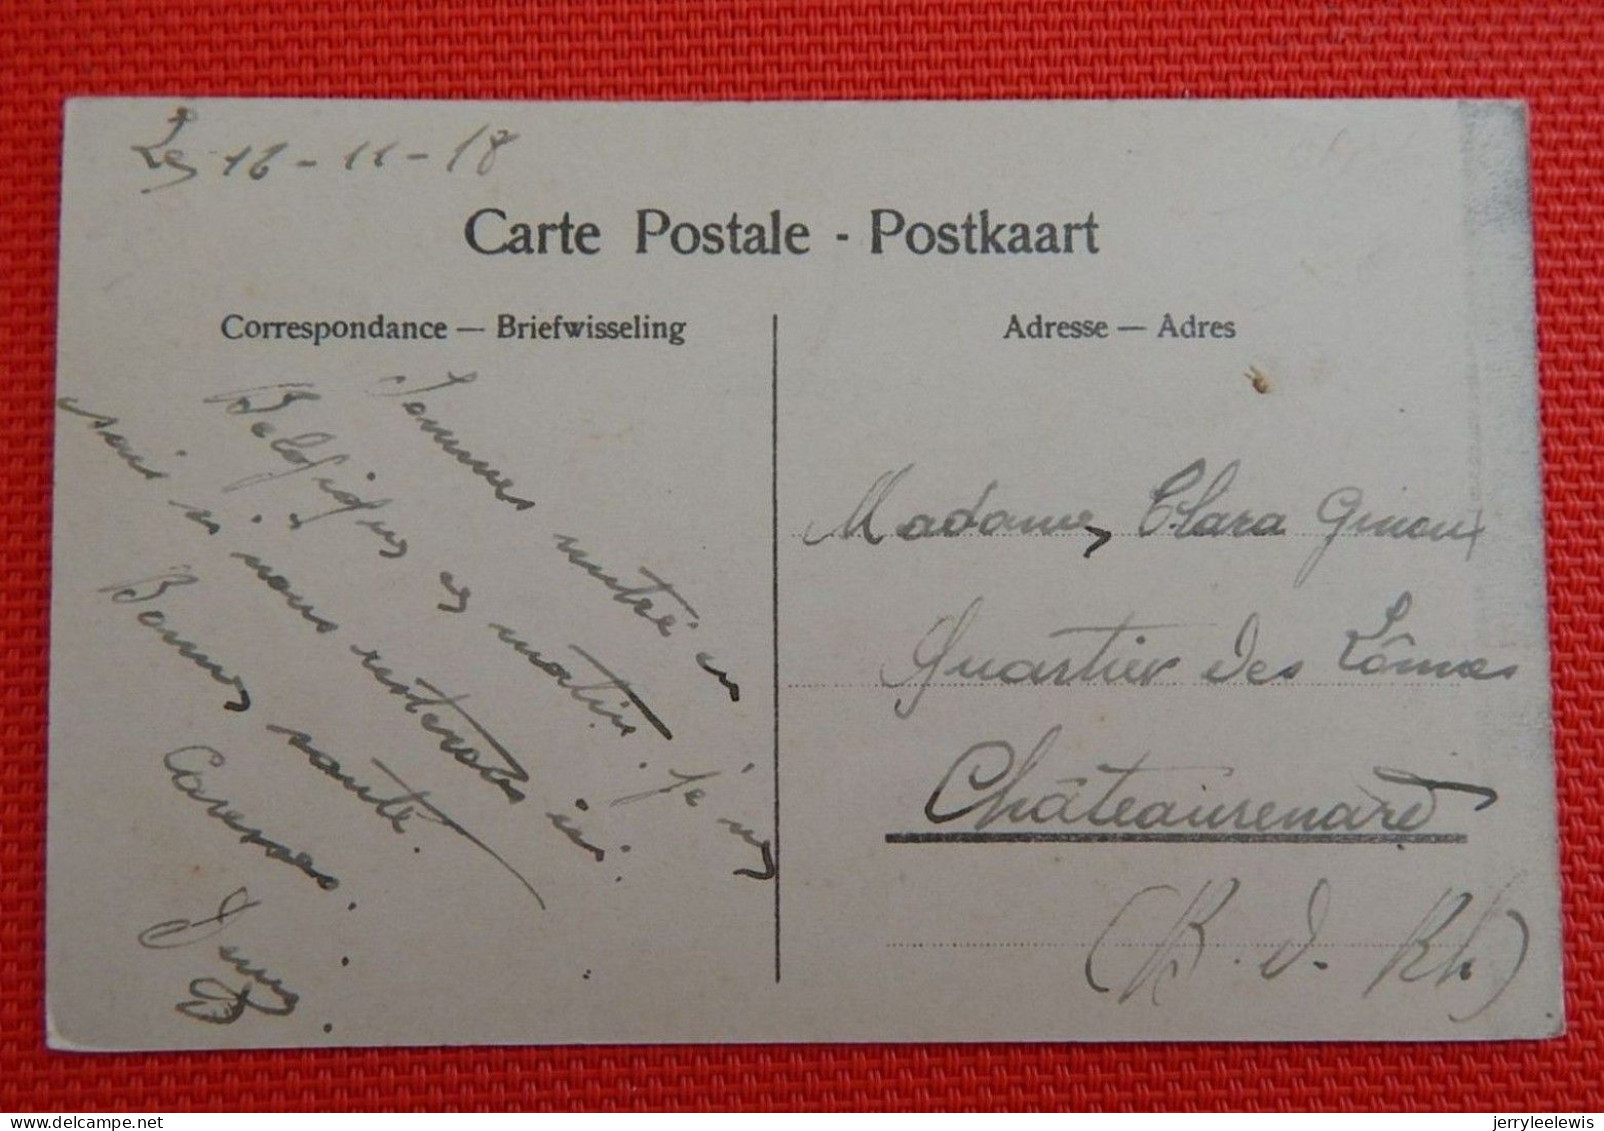 Le 16-11-18
Carte Postale - Postkaart
Correspondance — Briefwisseling
Sommes entré en
Belgique ce matin. Je ne
sais si nous resterons ici.
Bonne santé.
Caresses.
Adresse — Adres
Madame Clara Ginoux
Quartier des Lônes
Châteaurenard
(B. d. Rh)
jerryleelewis